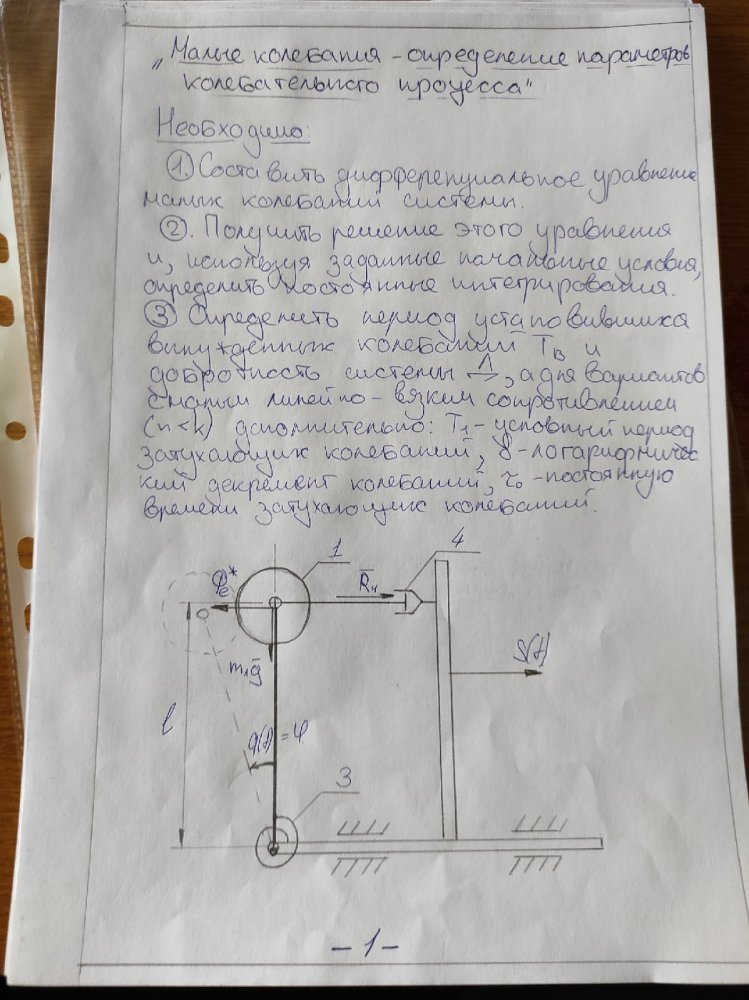 „Малые колебания – определение параметров
колебательного процесса"
Необходимо:
① Составить дифференциальное уравнение
малых колебаний системы.
②. Получить решение этого уравнения
и, используя заданные начальные условия,
определить постоянные интегрирования.
③ Определить период установившихся
вынужденных колебаний Tв и
добротность системы Λ, а для вариантов
с малым линейно-вязким сопротивлением
(n<k) дополнительно: T1 - условный период
затухающих колебаний, δ - логарифмичес
кий декремент колебаний, τ0 - постоянную
времени затухающих колебаний.
1
4
Φe*
R4
m1g
S(t)
l
q(t) = φ
3
– 1 –